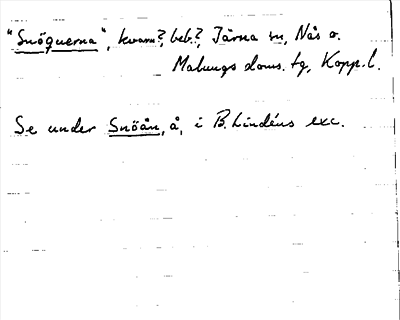 "Snöquerna", kvarn?, beb.?, Järna sn, Nås o.
Malungs doms. tg, Kopp. l.
Se under Snöån, å, i B. Lindéns exc.